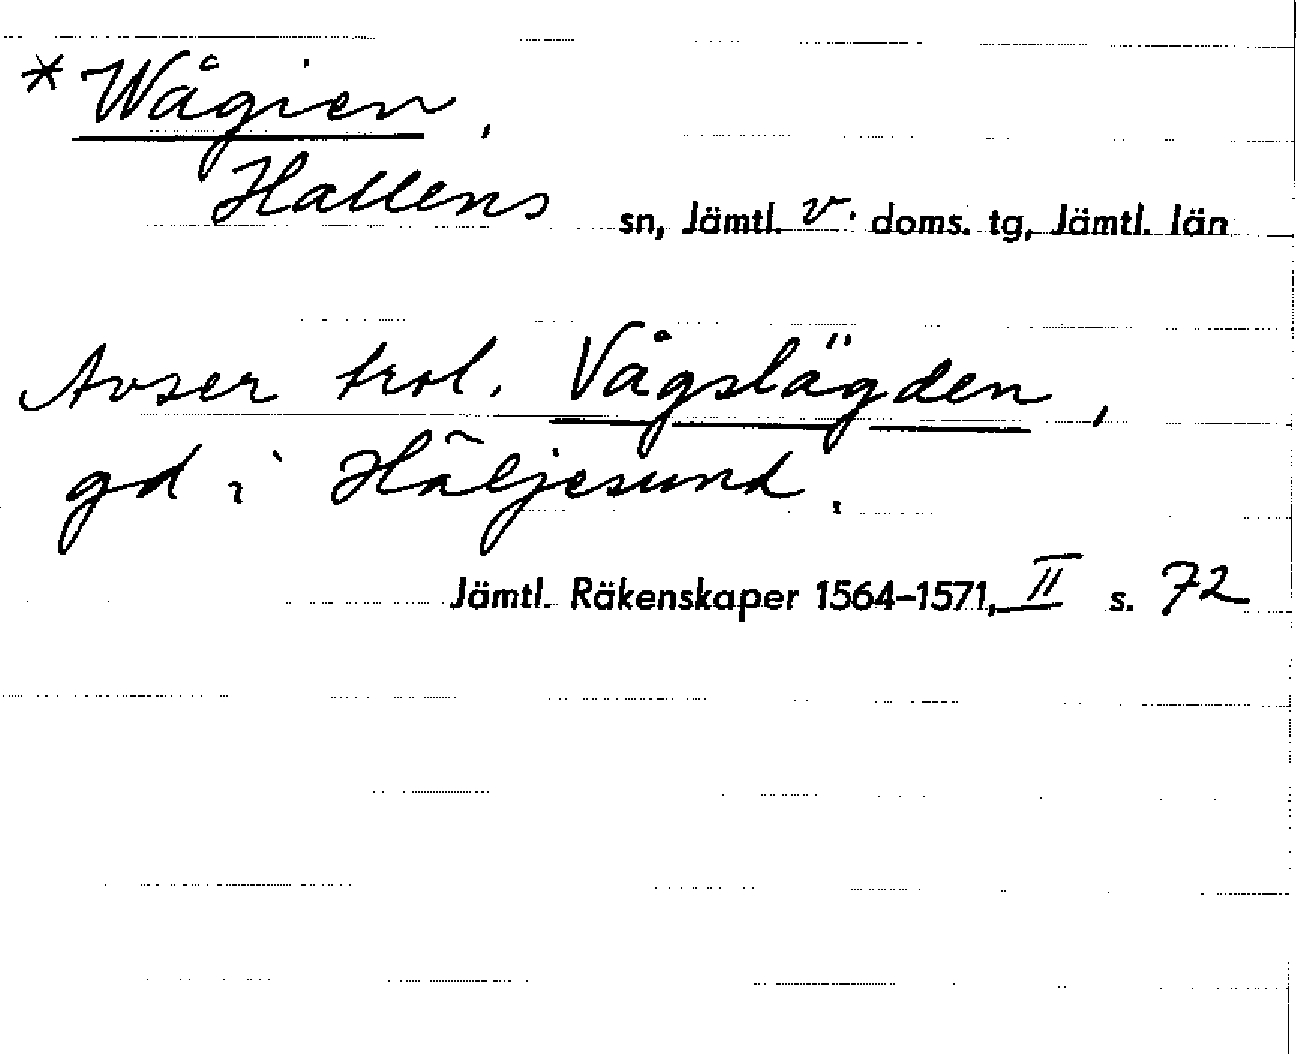 * Wågien,
Hallens sn, Jämtl. v. doms. tg, Jämtl. län
Avser trol. Vågslägden,
gd i Häljesund.
Jämtl. Räkenskaper 1564–1571, II s. 72